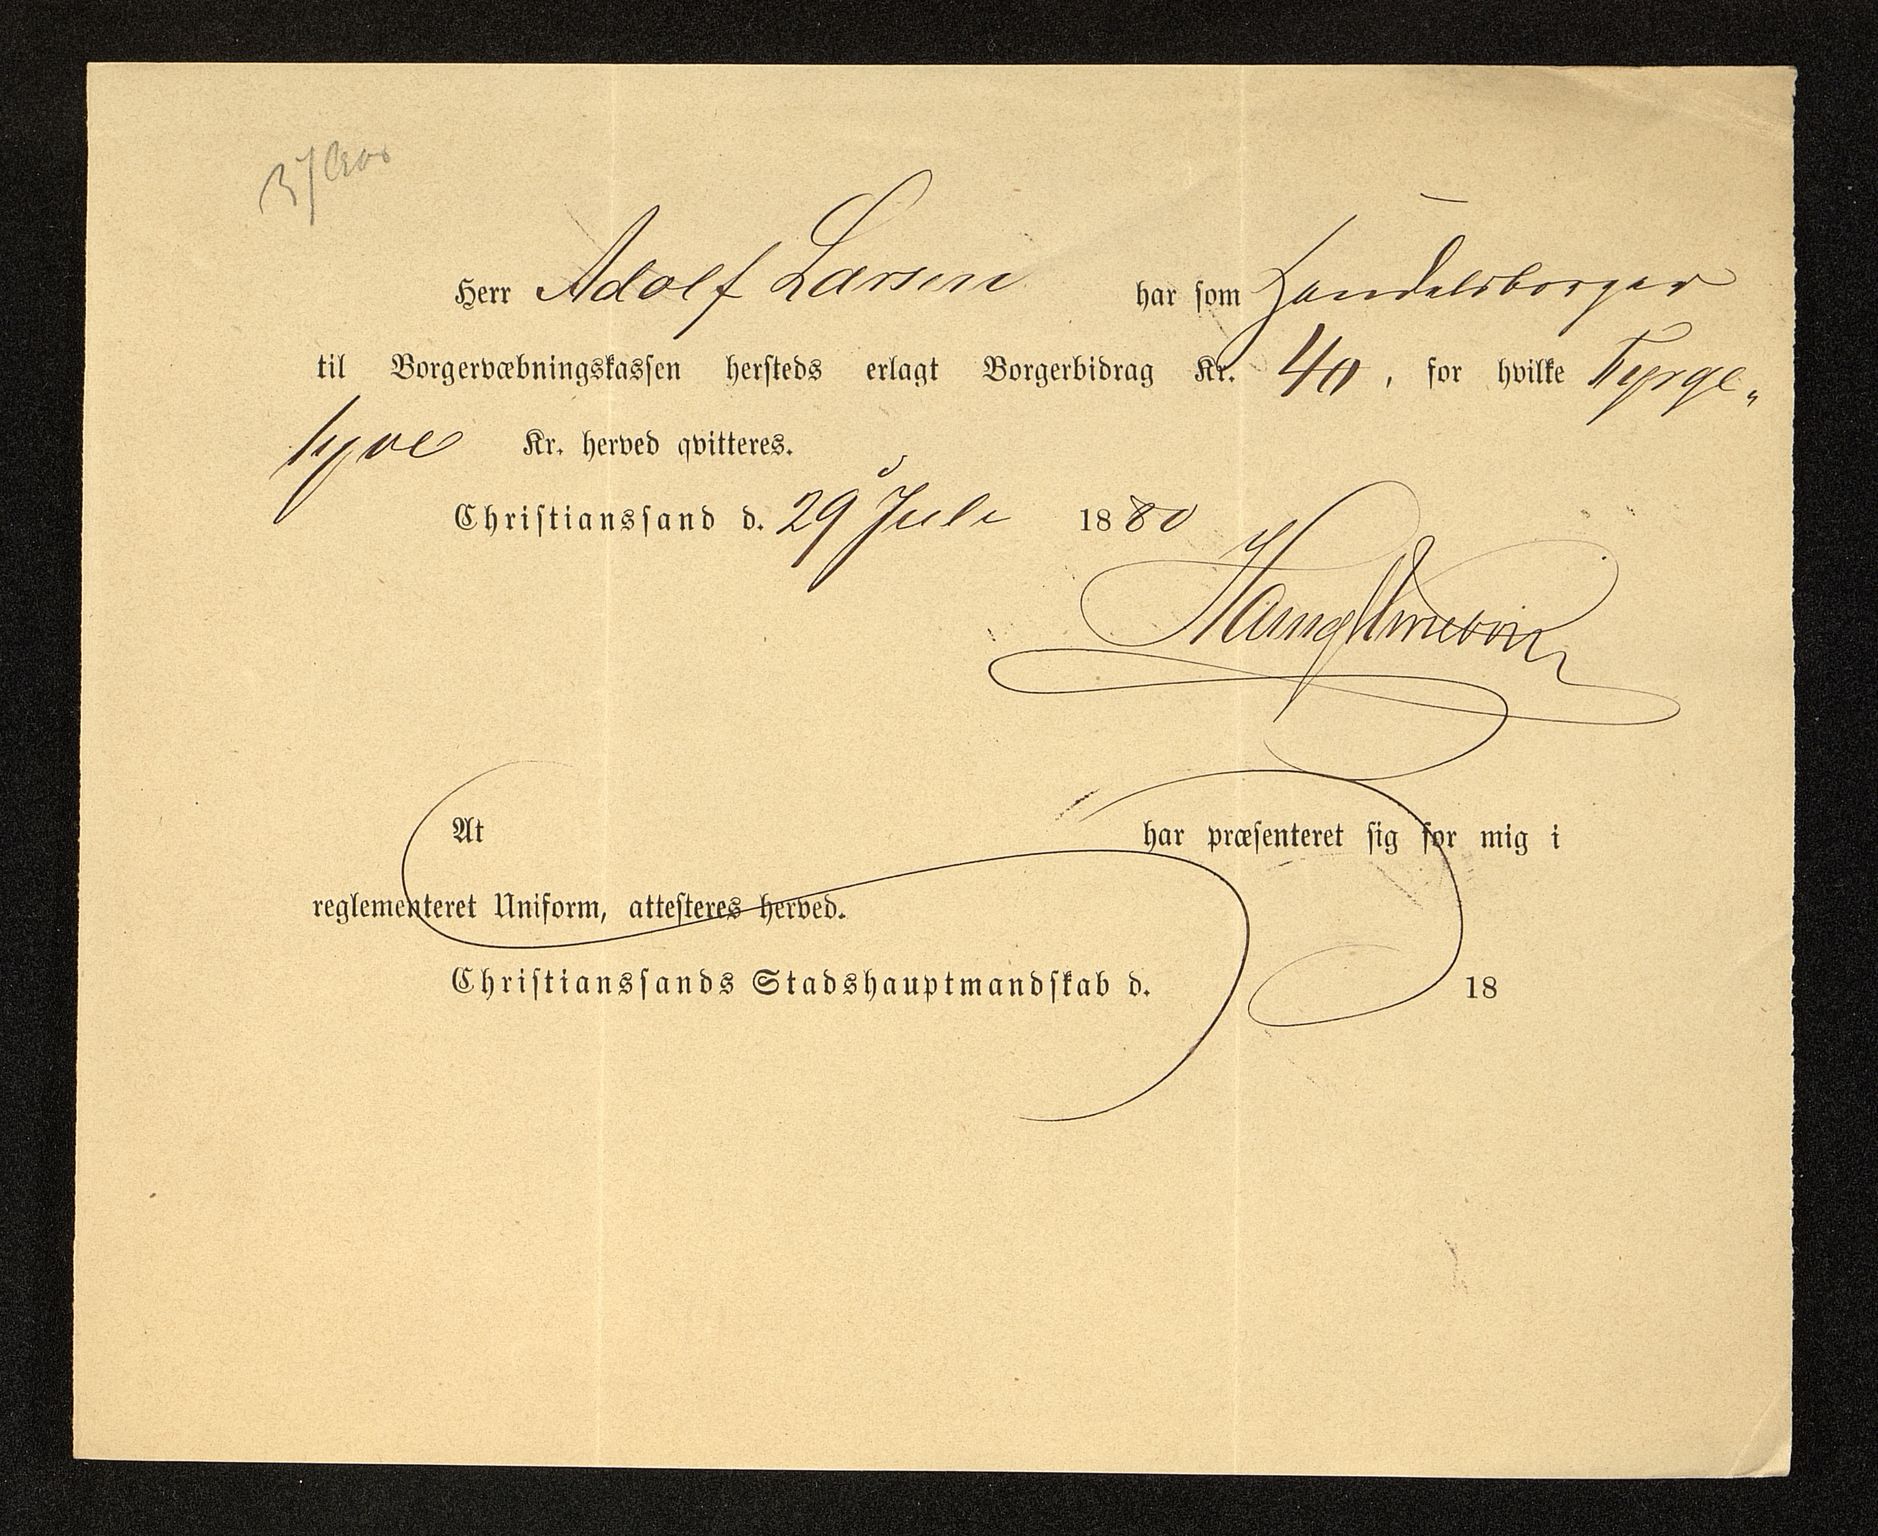 Herr Adolf Larsen har som Handelsborger
til Borgervæbningskassen hersteds erlagt Borgerbidrag Kr. 40, for hvilke Fyrge„
tyve Kr. herved qvitteres.
Christianssand d. 29 Juli 1880
At har præsenteret sig for mig i
reglementeret Uniform, attesteres herved.
Christianssands Stadshauptmandskab d. 18